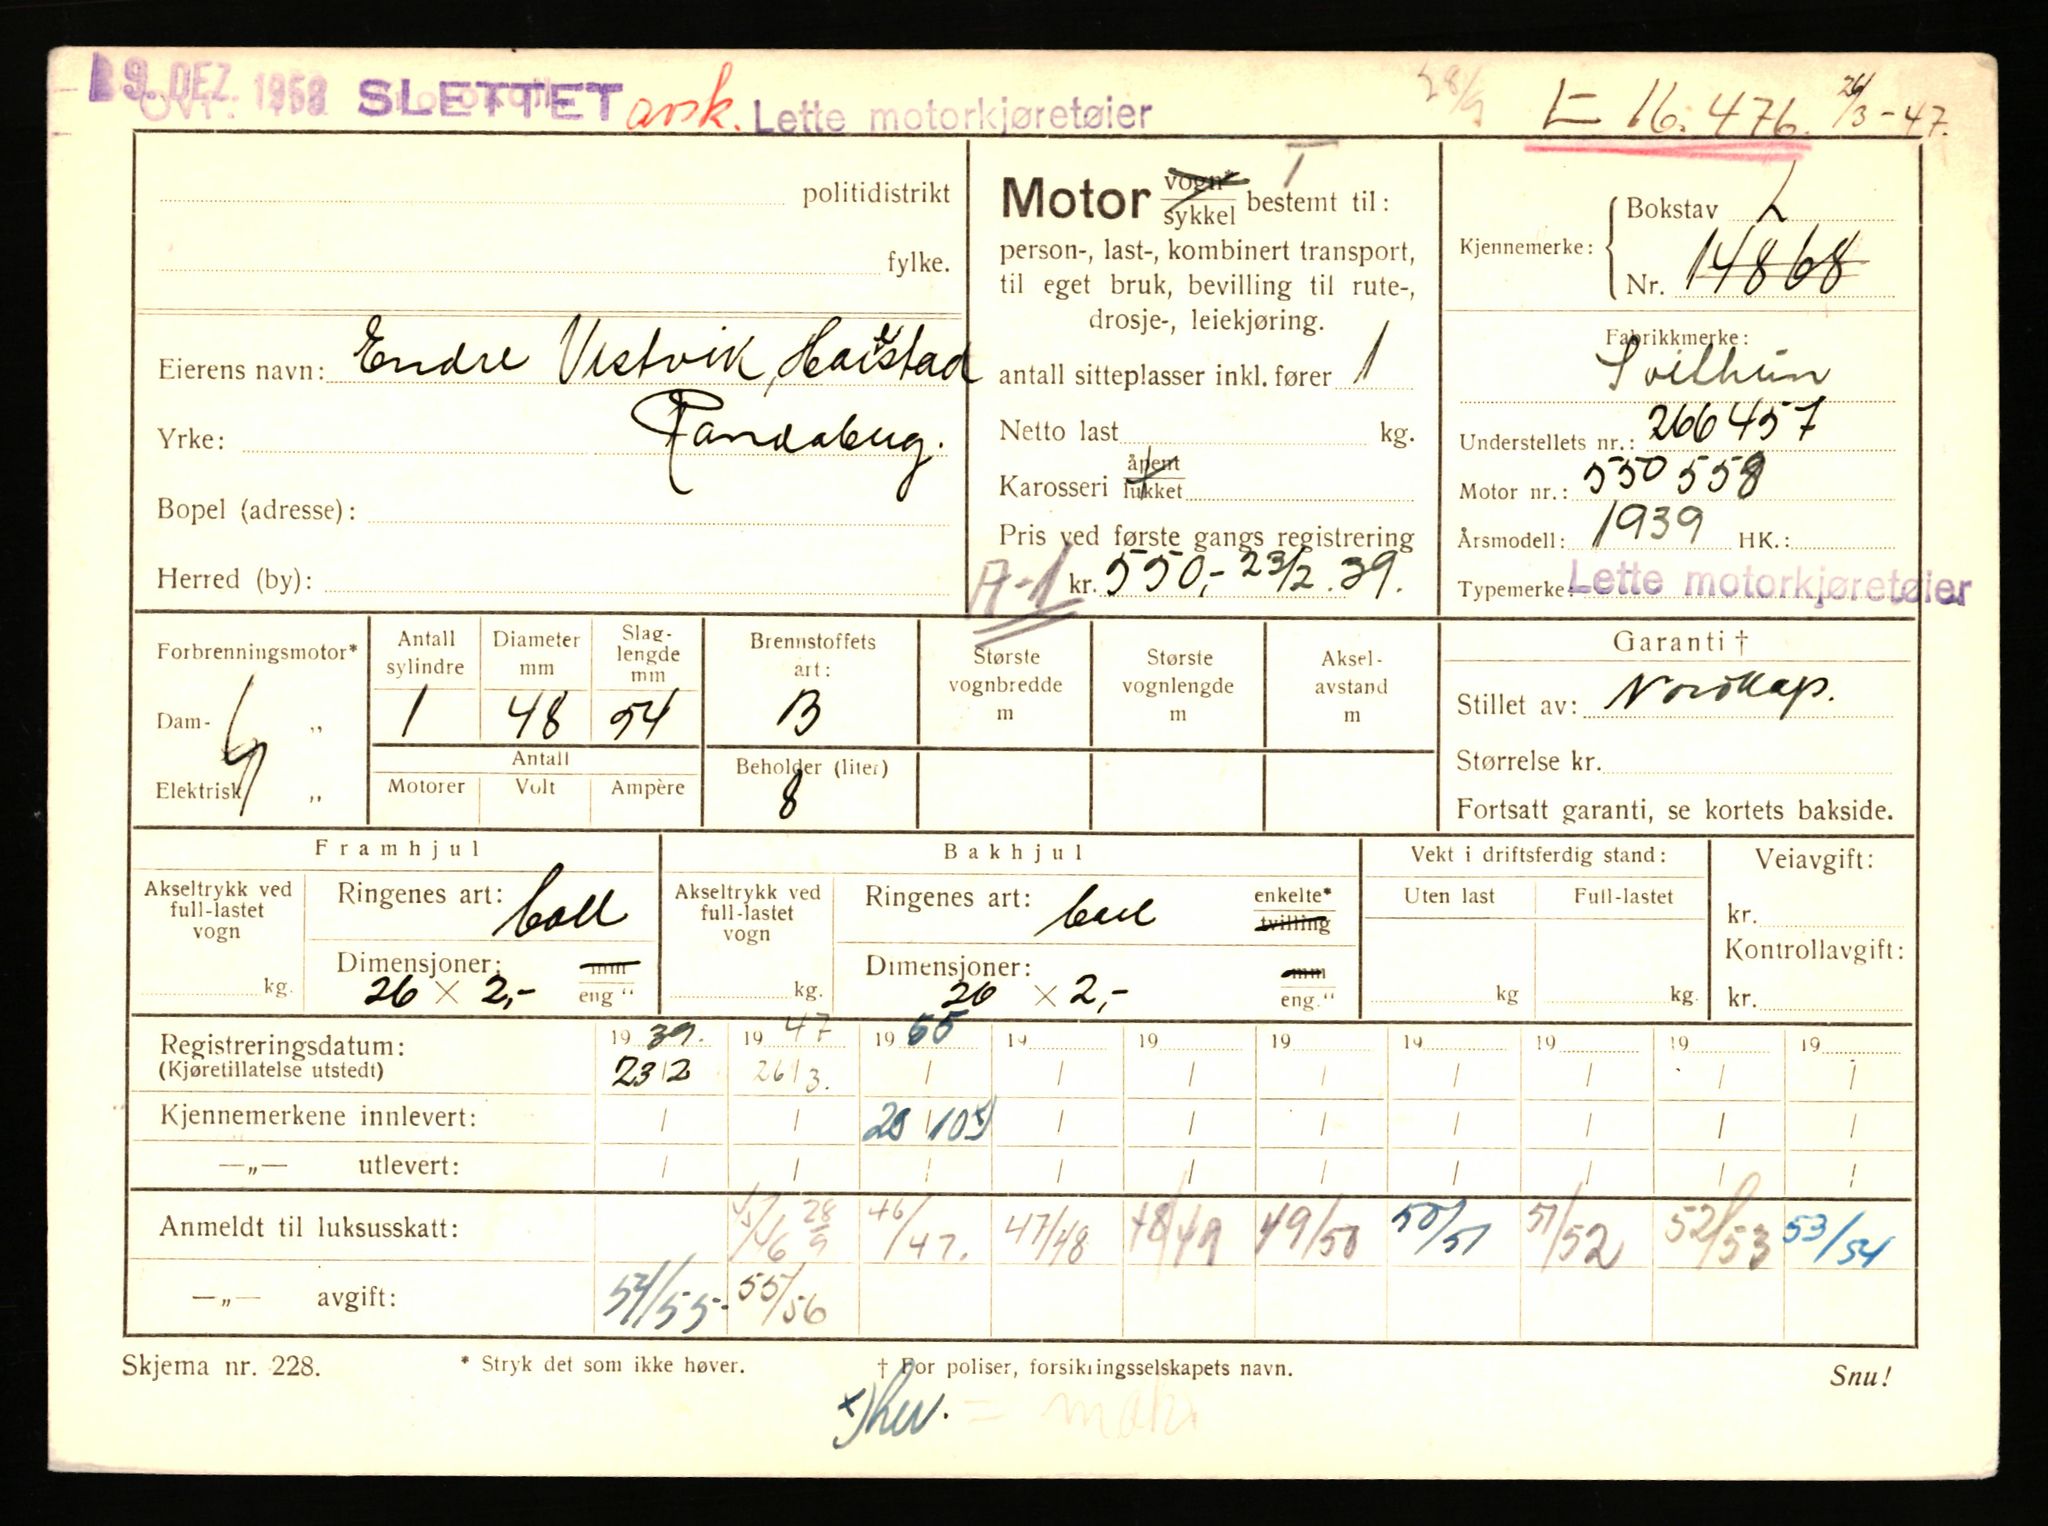 19. DEZ. 1958 SLETTET avsk. Lette motorkjøretøier 28/9 L-16.476. 26/3-47.
politidistrikt
fylke.
Eierens navn: Endre Vestvik, Harestad
Yrke: Randaberg.
Bopel (adresse):
Herred (by):
Motor vogn* sykkel bestemt til:
person-, last-, kombinert transport,
til eget bruk, bevilling til rute-,
drosje-, leiekjøring.
antall sitteplasser inkl. fører 1
Netto last kg.
Karosseri åpent lukket
Pris ved første gangs registrering
A-1 kr. 550,- 23/2.39.
Kjennemerke: Bokstav L
Nr. 14868
Fabrikkmerke:
Svithun
Understellets nr.: 266457
Motor nr.: 550558
Årsmodell: 1939 HK.:
Typemerke: Lette motorkjøretøier
Forbrenningsmotor*
Dam- „
Elektrisk „
Antall sylindre 1
Diameter mm 48
Slag-lengde mm 54
Antall
Motorer Volt Ampère
Brennstoffets art: B
Beholder (liter) 8
Største vognbredde m
Største vognlengde m
Aksel-avstand m
Garanti †
Stillet av: Nordkap.
Størrelse kr.
Fortsatt garanti, se kortets bakside.
Framhjul
Akseltrykk ved full-lastet vogn kg.
Ringenes art: Ball
Dimensjoner: 26 × 2,- mm eng "
Bakhjul
Akseltrykk ved full-lastet vogn kg.
Ringenes art: Ball enkelte* tvilling
Dimensjoner: 26 × 2,- mm eng."
Vekt i driftsferdig stand:
Uten last Full-lastet
kg kg.
Veiavgift:
kr.
Kontrollavgift:
kr.
Registreringsdatum: 19 39. 19 47 19 55 19 19 19 19 19 19 19
(Kjøretillatelse utstedt) 23/2 26/3. / / / / / / / /
Kjennemerkene innlevert: / / / / / / / / /
—„— utlevert: / / / / / / / / / /
Anmeldt til luksusskatt: 45/46 28/9 46/47. 47/48 48/49 49/50 50/51 51/52 52/53 53/54
—„— avgift: 54/55- 55/56
Skjema nr. 228. * Stryk det som ikke høver. † For poliser, forsikringsselskapets navn. Snu!